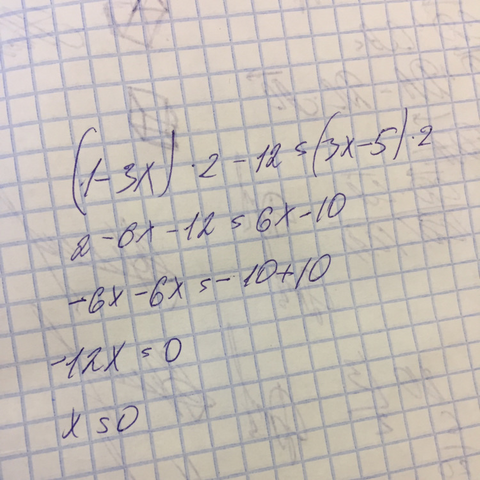 (1-3x)·2-12=(3x-5)·2
2-6x-12=6x-10
-6x-6x=-10+10
-12x=0
x=0